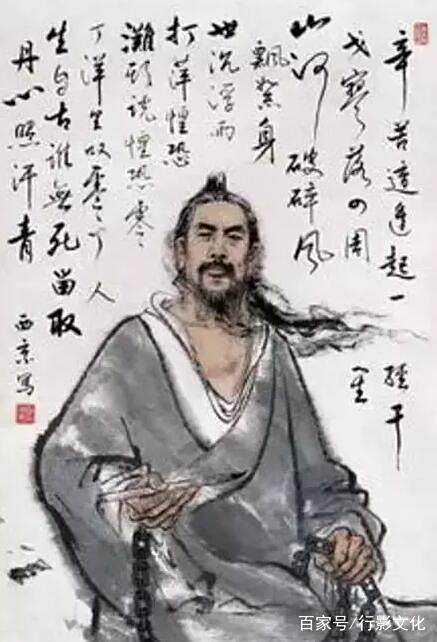 辛苦遭逢起一經干
戈寥落四周星
山河破碎風
飄絮身
世沉浮雨
打萍惶恐
灘頭說惶恐零
丁洋里嘆零丁人
生自古誰無死留取
丹心照汗青
西京写
百家号/行影文化